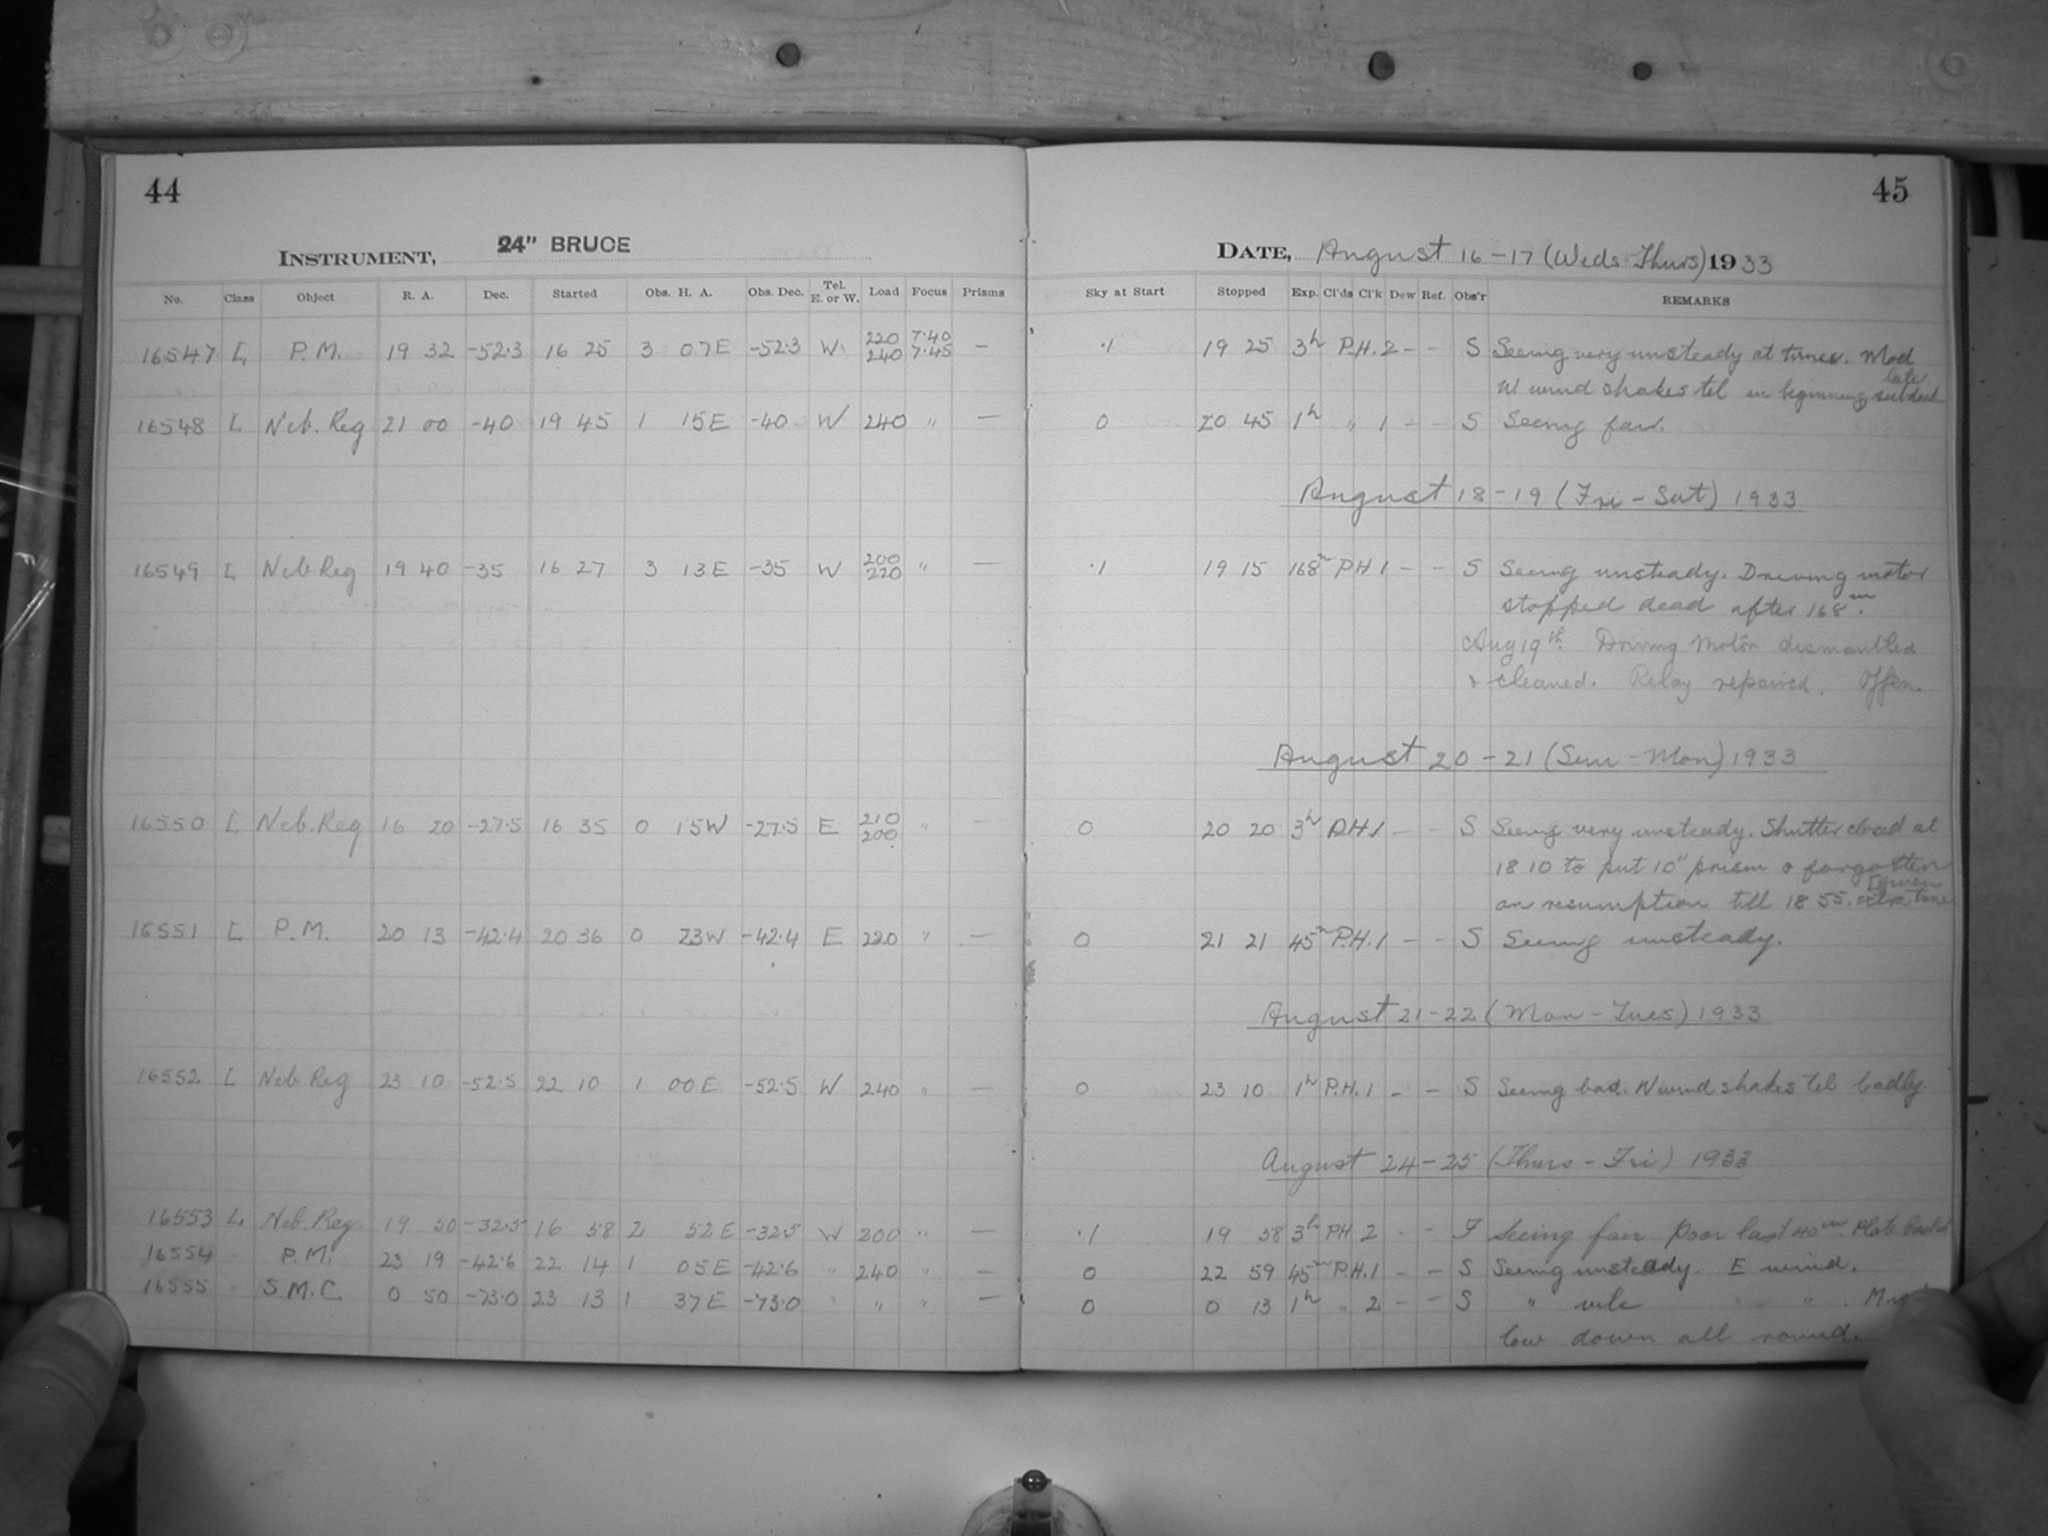 44
INSTRUMENT, 24" BRUCE
No. Class Object R. A. Dec. Started Obs. H. A. Obs. Dec. Tel. E. or W. Load Focus Prisms
16547 L P.M. 19 32 -52.3 16 25 3 07E -52.3 W 220 240 7.40 7.45 —
16548 L Neb. Reg 21 00 -40 19 45 1 15E -40 W 240 " —
16549 L Neb Reg 19 40 -35 16 27 3 13E -35 W 200 220 " —
16550 L Neb. Reg 16 20 -27.5 16 35 0 15W -27.5 E 210 200 " —
16551 L P.M. 20 13 -42.4 20 36 0 23W -42.4 E 220 " —
16552 L Neb Reg 23 10 -52.5 22 10 1 00E -52.5 W 240 " —
16553 L Neb. Reg. 19 50 -32.5 16 58 2 52E -32.5 W 200 " —
16554 " P.M. 23 19 -42.6 22 14 1 05E -42.6 " 240 " —
16555 " S.M.C. 0 50 -73.0 23 13 1 37E -73.0 " " " —
45
DATE, August 16-17 (Weds-Thurs) 1933
Sky at Start Stopped Exp. Cl'ds Cl'k Dew Ref. Obs'r REMARKS
.1 19 25 3h P.H. 2 - - S Seeing very unsteady at times. Mod
W wind shakes tel in beginning later subdued
0 20 45 1h " 1 - - S Seeing fair.
August 18-19 (Fri-Sat) 1933
.1 19 15 168m P.H 1 - - S Seeing unsteady. Driving motor
stopped dead after 168m.
Aug 19th. Driving Motor dismantled
& cleaned. Relay repaired.
August 20-21 (Sun-Mon) 1933
0 20 20 3h P.H 1 - - S Seeing very unsteady. Shutter closed at
18 10 to put 10" prism & forgotten
on resumption till 18 55. extra time given
0 21 21 45m P.H. 1 - - S Seeing unsteady.
August 21-22 (Mon-Tues) 1933
0 23 10 1h P.H. 1 - - S Seeing bad. N wind shakes tel badly.
August 24-25 (Thurs-Fri) 1933
.1 19 58 3h P.H 2 - - F Seeing fair Poor last 40m. Plate backed
0 22 59 45m P.H. 1 - - S Seeing unsteady. E wind.
0 0 13 1h " 2 - - S " vile " "
low down all round.